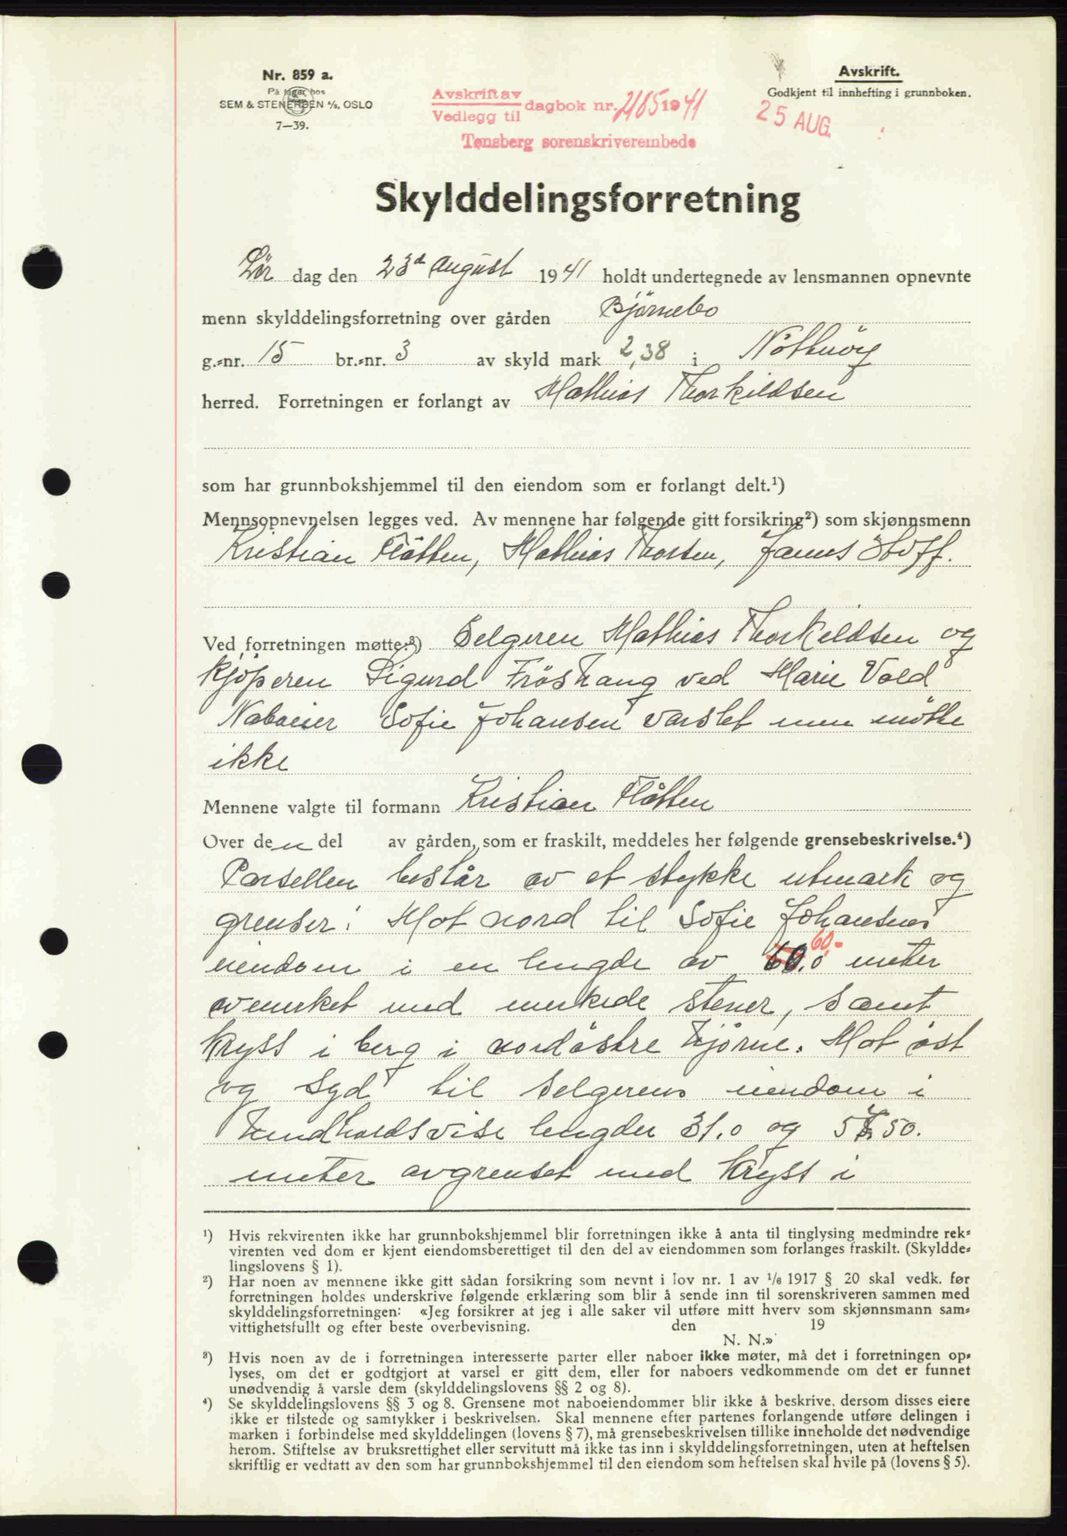 Nr. 859 a.
På lager hos
SEM & STENERSEN A/S, OSLO
7—39.
Avskrift av
Vedlegg til dagbok nr. 2185 1941
Tønsberg sorenskriverembede
Avskrift.
Godkjent til innhefting i grunnboken.
25 AUG.
Skylddelingsforretning
Lør dag den 23d august 1941 holdt undertegnede av lensmannen opnevnte
menn skylddelingsforretning over gården Bjørnebo
g.-nr. 15 br.-nr. 3 av skyld mark 2,38 i Nøtterøy
herred. Forretningen er forlangt av Mathias Thorkildsen
som har grunnbokshjemmel til den eiendom som er forlangt delt.¹)
Mennsopnevnelsen legges ved. Av mennene har følgende gitt forsikring²) som skjønnsmenn
Kristian Flåtten, Mathias Thorsen, James Hoff.
Ved forretningen møtte:³) Selgeren Mathias Thorkildsen og
kjøperen Sigurd Frøshaug ved Marie Vold
Naboeier Sofie Johansen varslet men møtte
ikke
Mennene valgte til formann Kristian Flåtten
Over den del av gården, som er fraskilt, meddeles her følgende grensebeskrivelse.⁴)
Parsellen består av et stykke utmark og
grenser: Mot nord til Sofie Johansens
eiendom i en lengde av 60,0 60,- meter
avmerket med merkede stener, samt
kryss i berg i nordøstre hjørne. Mot øst
og syd til selgerens eiendom i
henholdsvise lengder 31,0 og 57,50.
meter avgrenset med kryss i
¹) Hvis rekvirenten ikke har grunnbokshjemmel blir forretningen ikke å anta til tinglysing medmindre rek-
virenten ved dom er kjent eiendomsberettiget til den del av eiendommen som forlanges fraskilt. (Skyldde-
lingslovens § 1).
²) Har noen av mennene ikke gitt sådan forsikring som nevnt i lov nr. 1 av 1/6 1917 § 20 skal vedk. før
forretningen holdes underskrive følgende erklæring som blir å sende inn til sorenskriveren sammen med
skylddelingsforretningen: «Jeg forsikrer at jeg i alle saker vil utføre mitt hverv som skjønnsmann sam-
vittighetsfullt og efter beste overbevisning. den 19
N. N.»
³) Hvis noen av de i forretningen interesserte parter eller naboer ikke møter, må det i forretningen op-
lyses, om det er godtgjort at varsel er gitt dem, eller for naboers vedkommende om det er funnet
unødvendig å varsle dem (skylddelingslovens §§ 2 og 8).
⁴) Se skylddelingslovens §§ 3 og 8. Grensene mot naboeiendommer blir ikke å beskrive, dersom disses eiere
ikke er tilstede og samtykker i beskrivelsen. Skal mennene efter partenes forlangende utføre delingen i
marken i forbindelse med skylddelingen (lovens § 7), må grensebeskrivelsen tillike inneholde det nødvendige
herom. Stiftelse av bruksrettighet eller servitutt må ikke tas inn i skylddelingsforretningen, uten at heftelsen
skriftlig er vedtatt av den som har grunnbokshjemmel til den eiendom som heftelsen skal hvile på (lovens § 5).